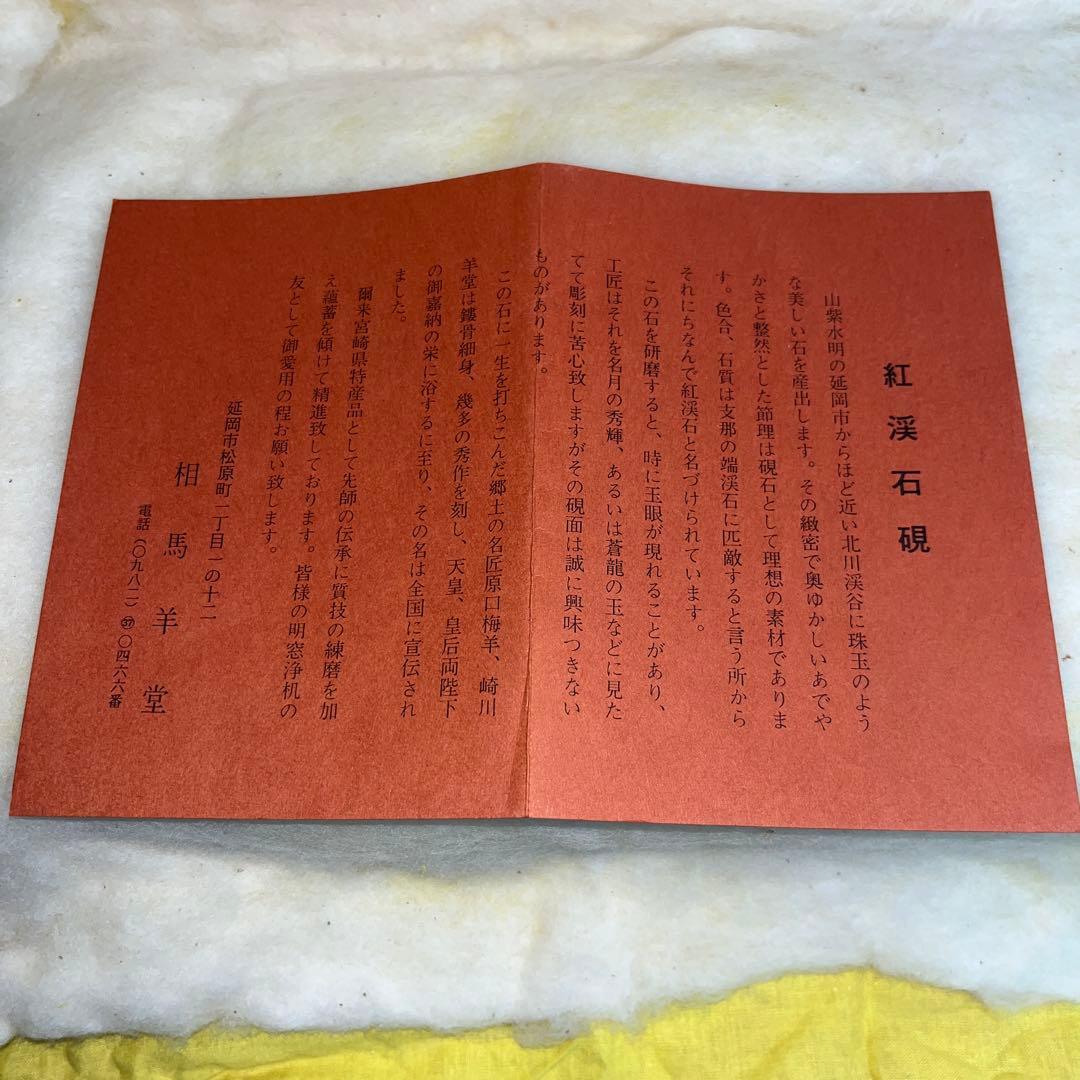 紅渓石硯
山紫水明の延岡市からほど近い北川渓谷に珠玉のよう
な美しい石を産出します。その緻密で奥ゆかしいあでや
かさと整然とした節理は硯石として理想の素材でありま
す。色合、石質は支那の端渓石に匹敵すると言う所から
それにちなんで紅渓石と名づけられています。
この石を研磨すると、時に玉眼が現れることがあり、
工匠はそれを名月の秀輝、あるいは蒼龍の玉などに見た
てて彫刻に苦心致しますがその硯面は誠に興味つきない
ものがあります。
この石に一生を打ちこんだ郷土の名匠原口梅羊、崎川
羊堂は鏤骨細身、幾多の秀作を刻し、天皇、皇后両陛下
の御嘉納の栄に浴するに至り、その名は全国に宣伝され
ました。
爾来宮崎県特産品として先師の伝承に質技の練磨を加
え蘊蓄を傾けて精進致しております。皆様の明窓浄机の
友として御愛用の程お願い致します。
延岡市松原町一丁目一の十二
相馬羊堂
電話(〇九八二)㊲〇四六六番